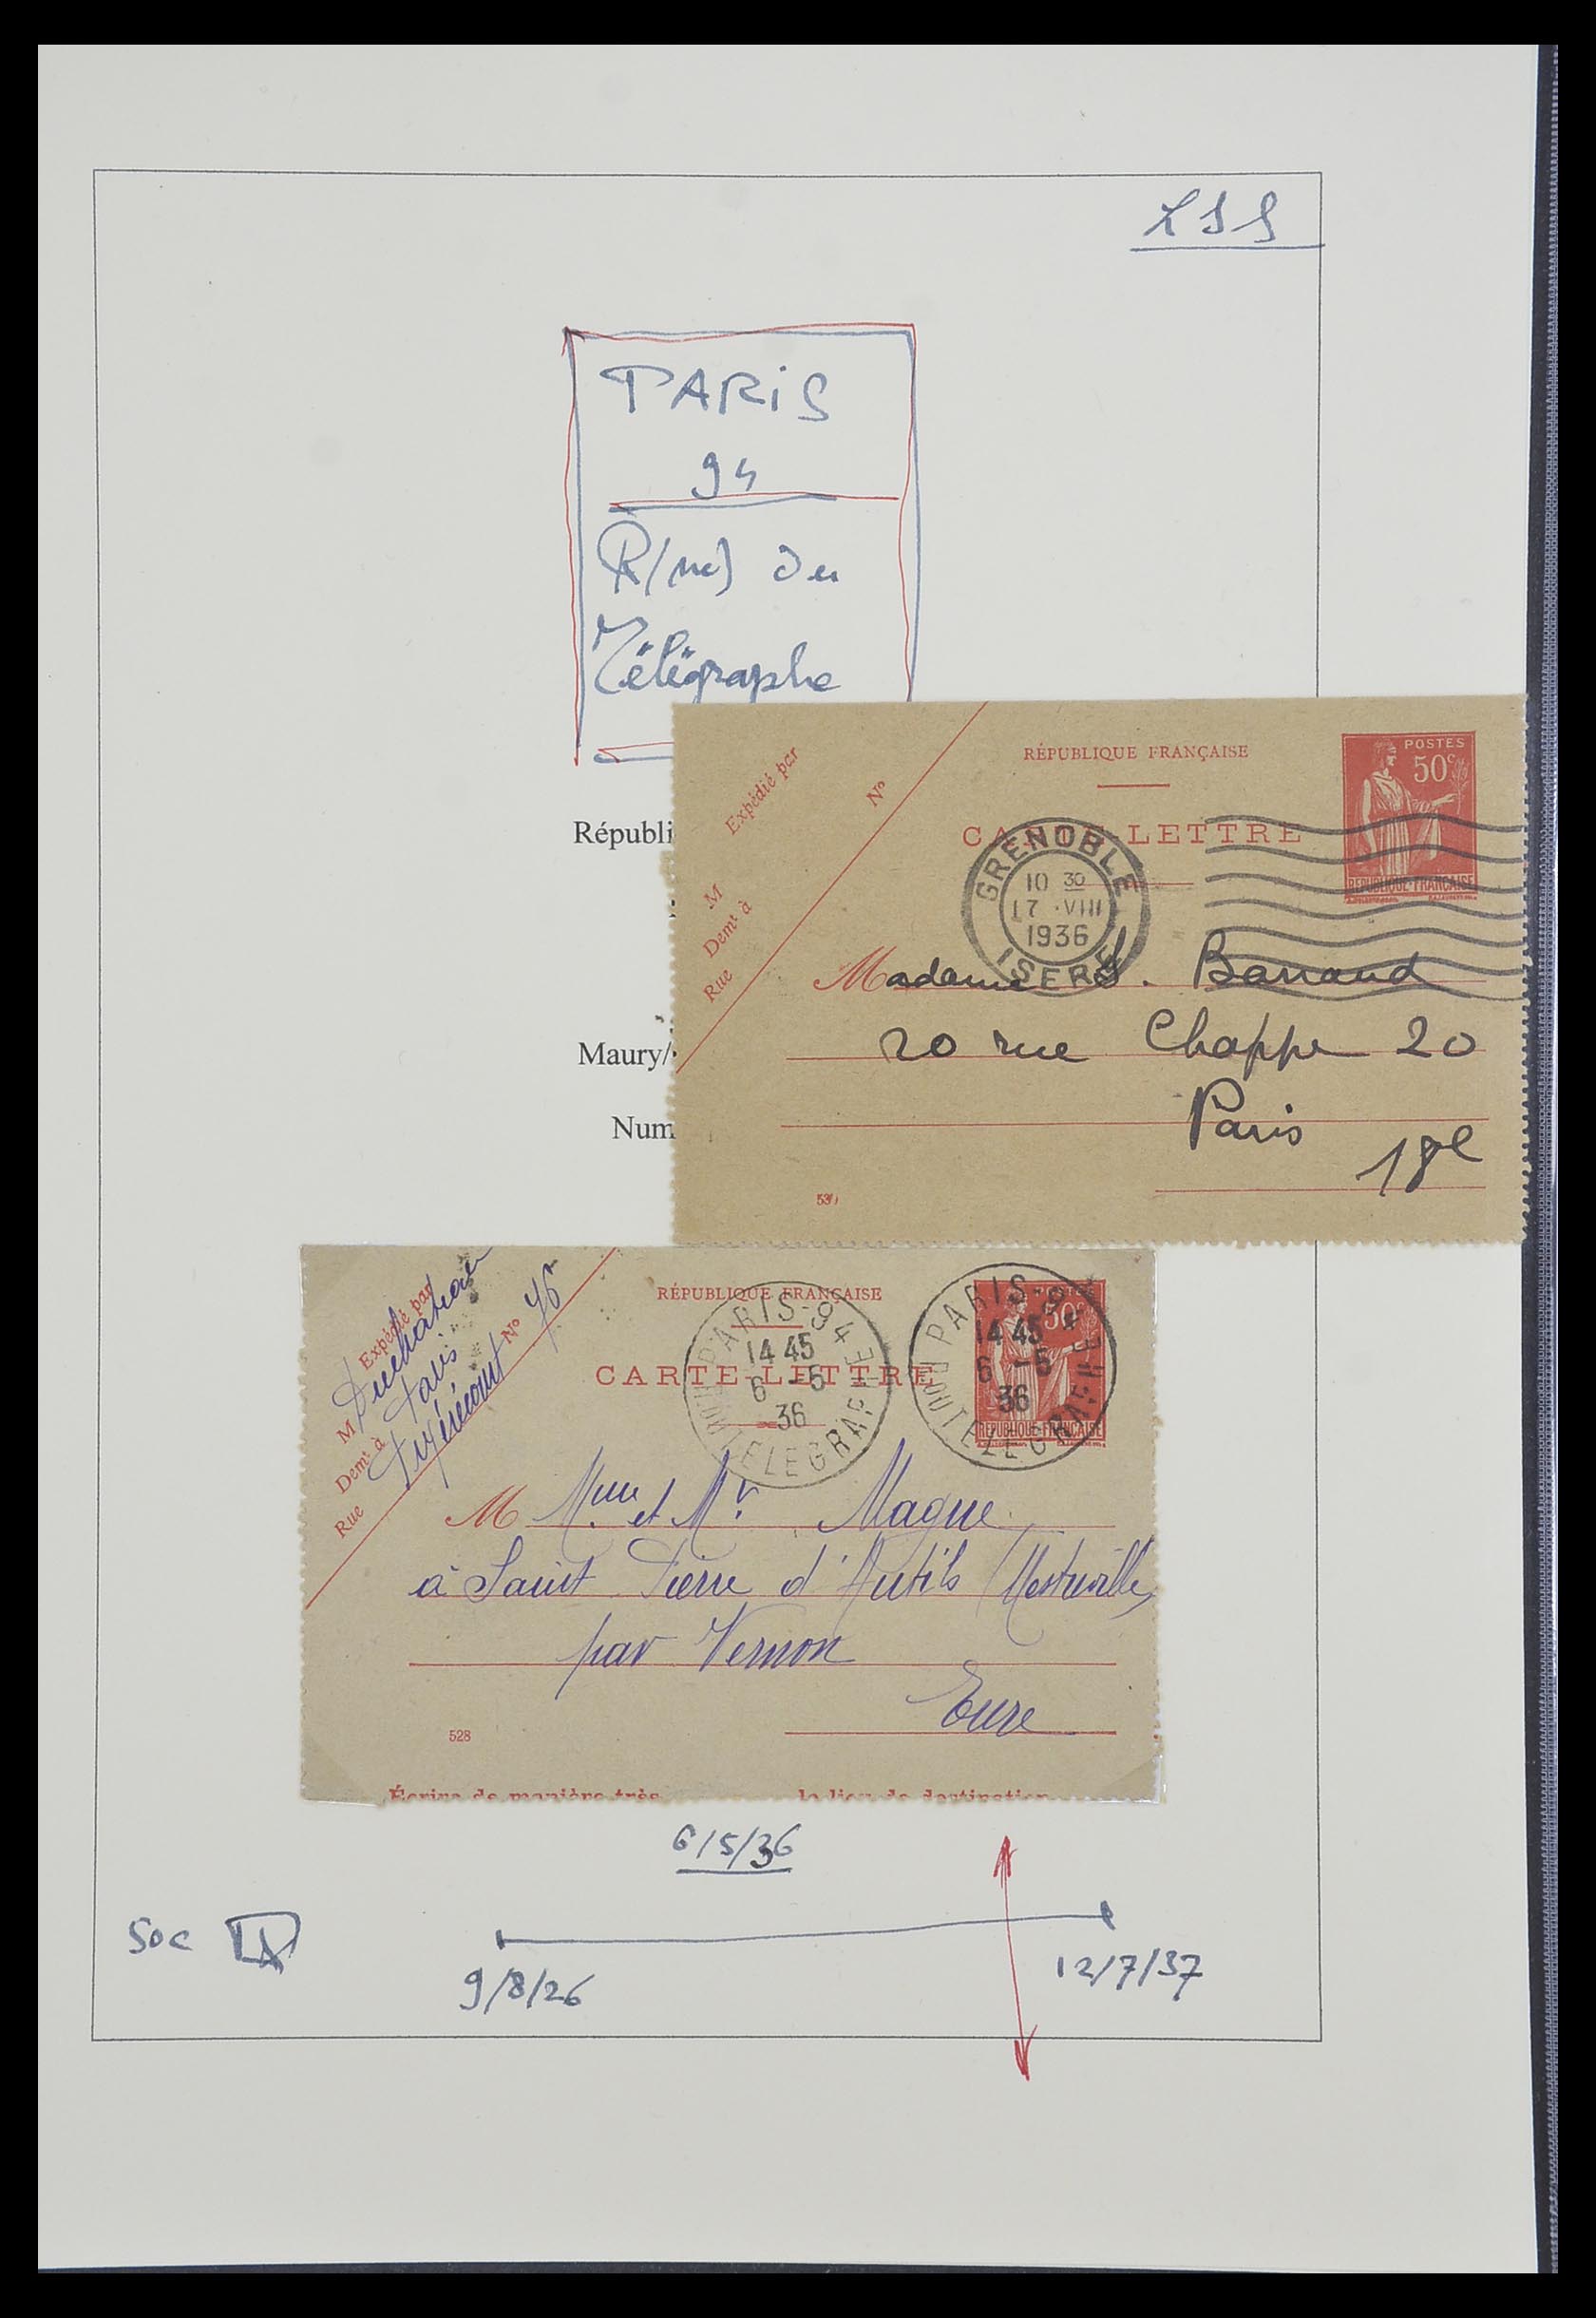 PARiS
94
R/ du
Télégraphe
Républi
Maury/
Num
Expédié par
Nº
M
Demt à
Rue
RÉPUBLIQUE FRANÇAISE
CARTE-LETTRE
POSTES
50c
REPUBLIQUE-FRANÇAISE
GRENOBLE
10 30
17 VIII
1936
ISERE
Madame . Barraud
20 rue Chappe 20
Paris
18e
Expédié par
Paris
Nº 76
M
Demt à
Rue Pixérécourt
RÉPUBLIQUE FRANÇAISE
CARTE-LETTRE
PARIS-94
14 45
6 -5
36
TELEGRAPHE
POSTES
50c
REPUBLIQUE-FRANÇAISE
PARIS-94
14 45
6 -5
36
TELEGRAPHE
M Mme et Mr. Magne
à Saint Pierre d'Autils (Mestreville)
par Vernon
Eure
528
Écrire de manière très le lieu de destination
6/5/36
50c
9/8/26
12/7/37